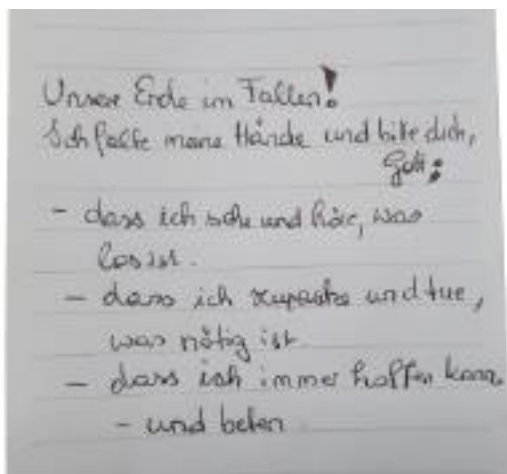 Unsere Erde im Fallen!
Ich falte meine Hände und bitte dich,
Gott:
- dass ich sehe und höre, was
los ist.
- dass ich zupacke und tue,
was nötig ist
- dass ich immer hoffen kann,
- und beten